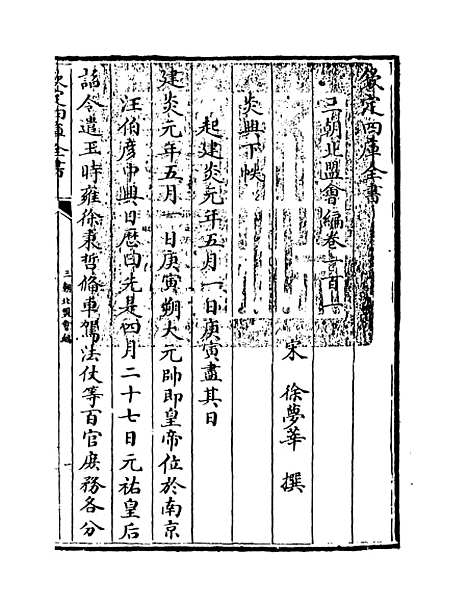 欽定四庫全書
三朝北盟會編卷一百一
宋 徐夢莘 撰
炎興下帙
起建炎元年五月一日庚寅盡其日
建炎元年五月一日庚寅朔大元帥即皇帝位於南京
汪伯彥中興日歷曰先是四月二十七日元祐皇后
詔令遣王時雍徐秉哲備車駕法仗等百官庶務各分
欽定四庫全書
三朝北盟會編
一